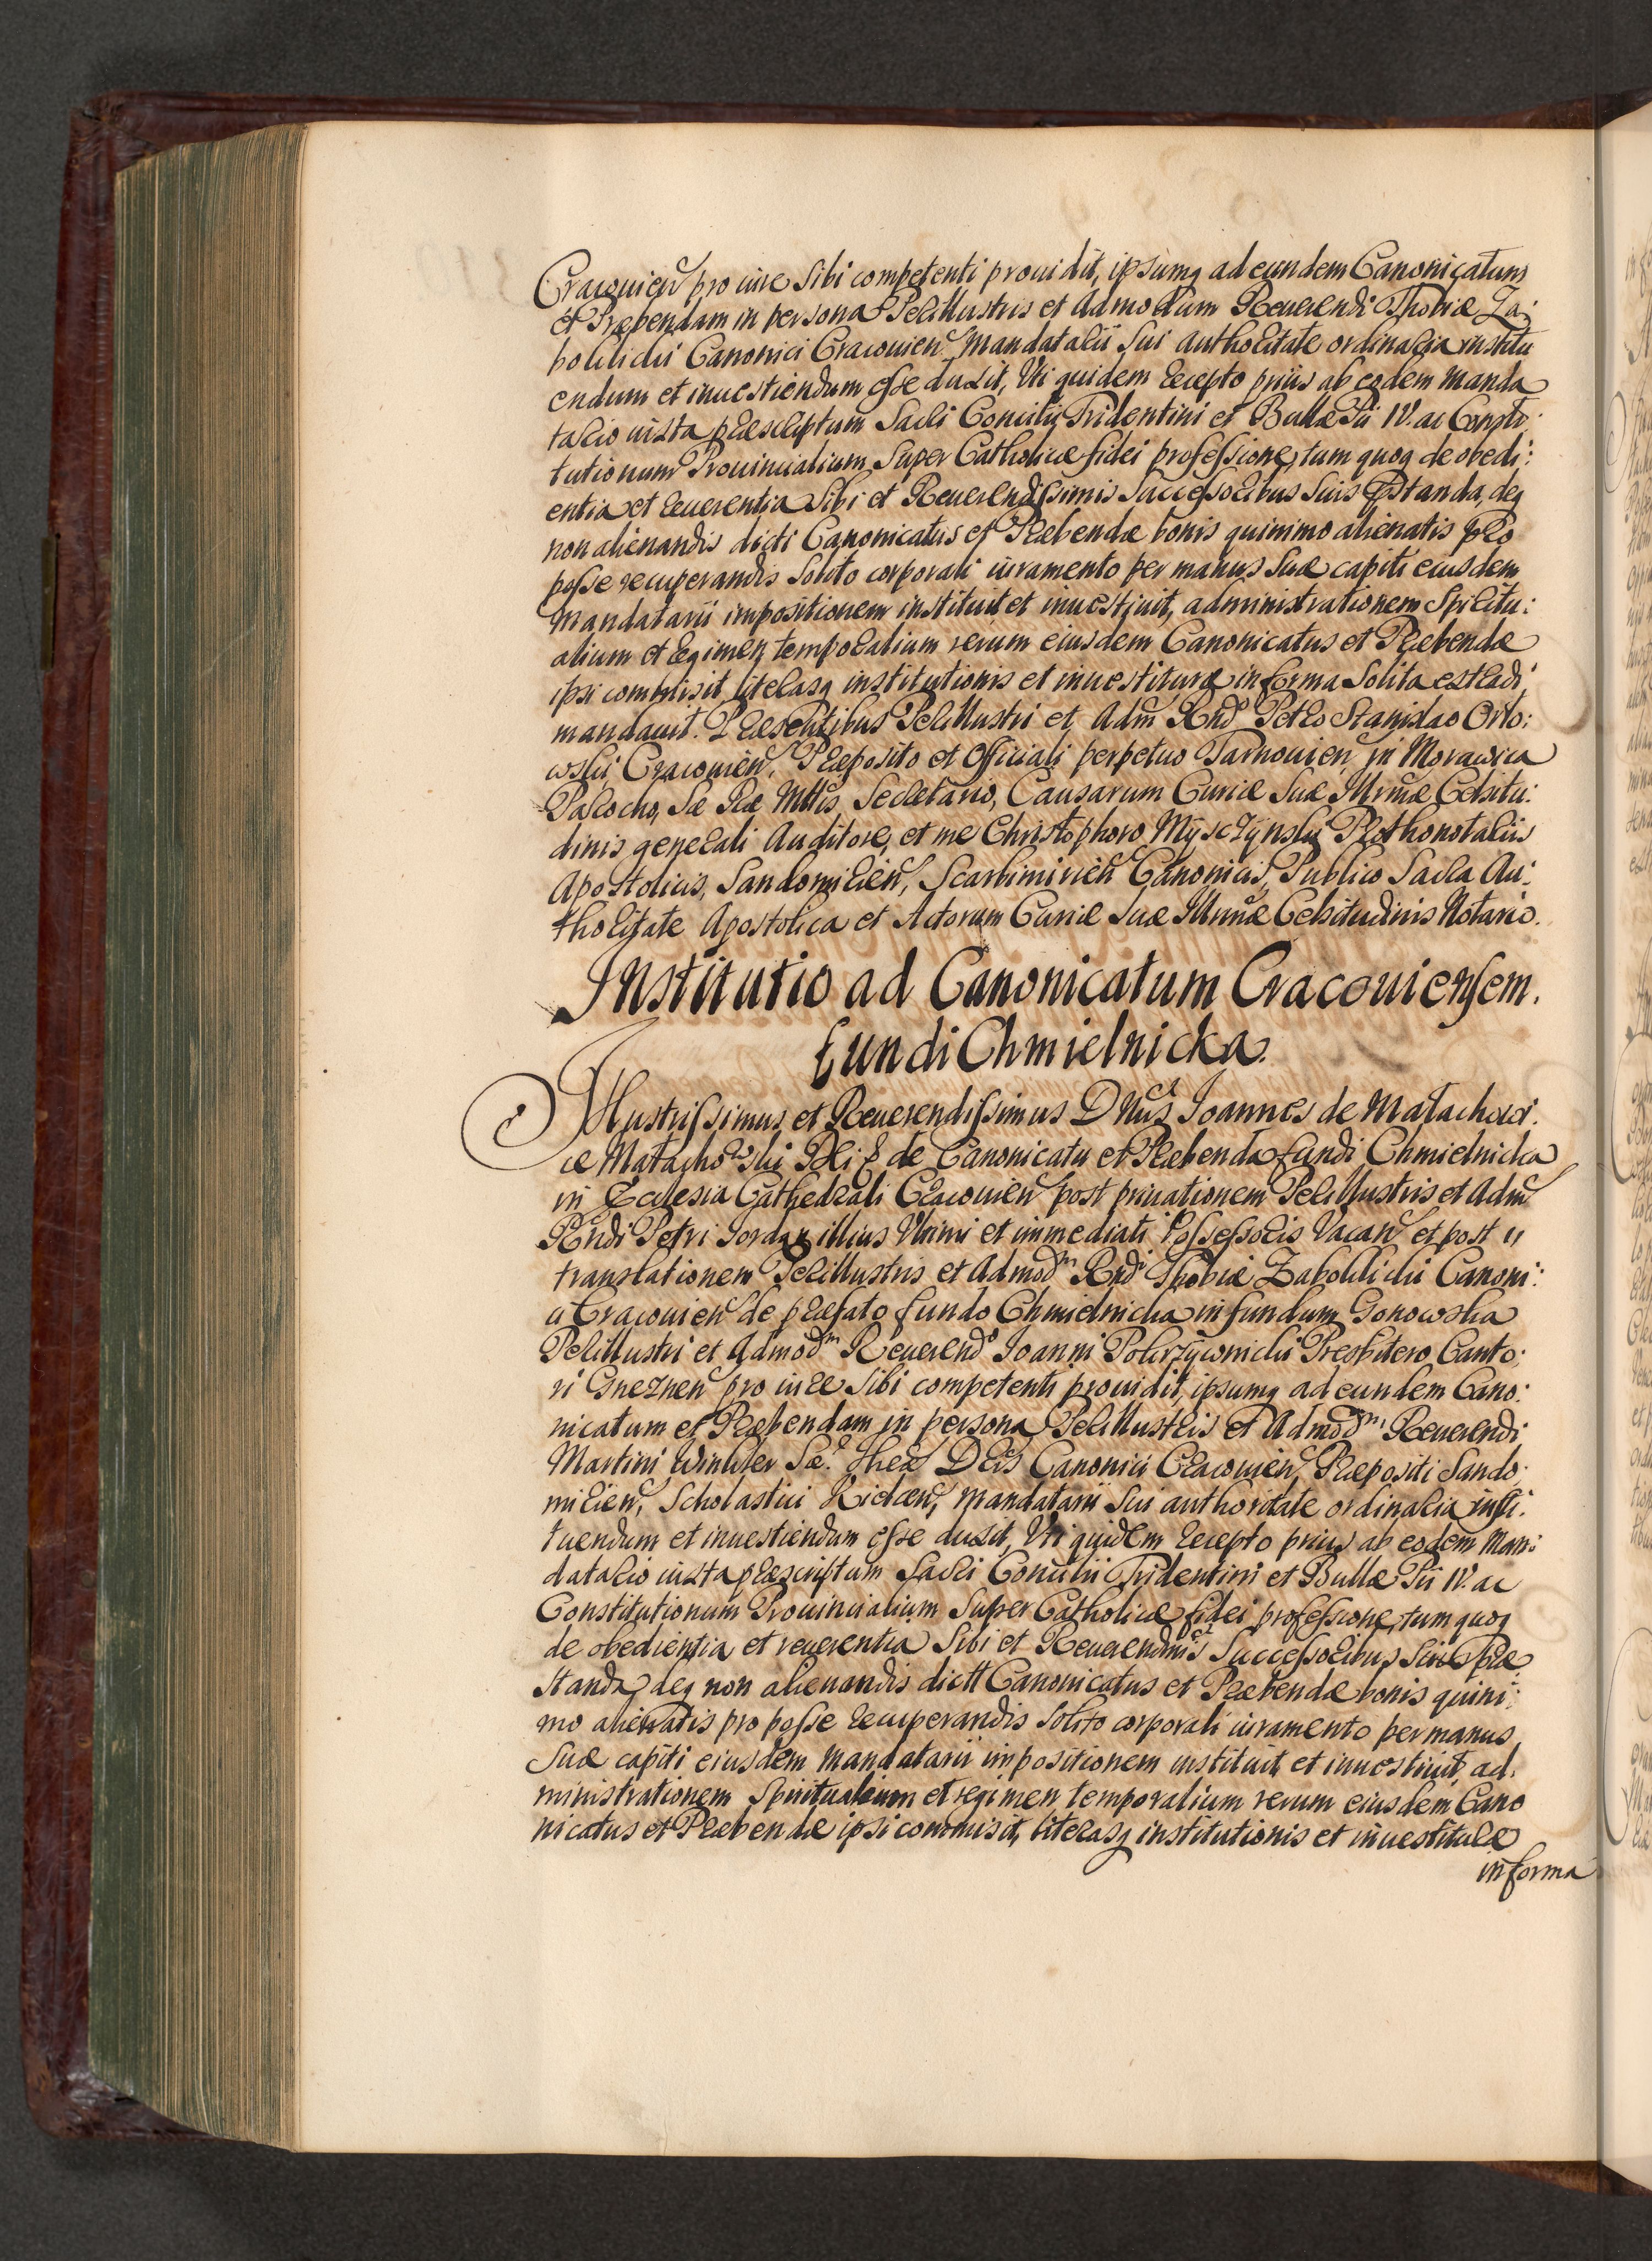 Cracouien pro iure sibi competenti prouidit, ipsumq ad eundem Canonicatum
et Præbendam in persona Perillustris et Admodum Reuerendi Thobiæ Za:
bokrlicki Canonici Cracouien Mandatarii sui authoritate ordinaria institu
endum et inuestiendum esse duxit, Uti quidem recepto priùs ab eodem manda
tario iuxta præscriptum Sacri Concilii Tridentini et Bullæ Pii IV. ac Consti:
tutionum Prouincialium super Catholicæ fidei professione, tum quoq de obedi:
entia et reuerentia sibi et Reuerendissimis Successoribus suis præstanda, deq
non alienandis dicti Canonicatus et Præbendæ bonis quinimo alienatis pro
posse recuperandis solito corporali iuramento per manus suæ capiti eiusdem
Mandatarii impositionem instituit et inuestiuit, administrationem Spiritu:
alium et regimen temporalium rerum eiusdem Canonicatus et Præbendæ
ipsi commisit literasq institutionis et inuestituræ in forma solita extradi
mandauit. Præsentibus Perillustri et Adm Rndo Petro Stanislao Orlo:
wski, Cracouien, Præposito et Officiali perpetuo Tarnouien, in Morawica
Parocho, Sæ Ræ Mttis Secretario, Causarum Curiæ Suæ Illrmæ Celsitu:
dinis generali Auditore, et me Christophoro Mysczynski Prothonotariis
Apostolicis, Sandomirien, Scarbimirien Canonicis, Publico Sacra Au:
thoritate Apostolica et Actorum Curiæ Suæ Illrmæ Celsitudinis Notario.
Institutio ad Canonicatum Cracouiensem.
fundi Chmielnicka.
Illustrissimus et Reuerendissimus Dnus Ioannes de Małachowi:
ce Małachowski de Canonicatu et Præbenda fundi Chmielnicka
in Ecclesia Cathedrali Cracouien post priuationem Perillustris et Adm
Rndi Petri Iordan illius Ultimi et immediati possessoris Vacan et post
translationem Perillustris et Admodm Rndi Thobiæ Zabokrlicki Canoni:
ci Cracouien de præfato fundo Chmielnicka in fundum Gonowska
Perillustri et Admodm Reuerendo Ioanni Pokrzywnicki Presbitero, Canto:
ri Gneznen pro iure sibi competenti prouidit, ipsumq ad eundem Cano:
nicatum et Præbendam in persona Perillustris et Admodm Reuerendi
Martini Winkler Sæ Theæ Dris Canonici Cracouien, Præpositi Sando:
mirien, Scholastici Kielcen, Mandatarii sui authoritate ordinaria insti:
tuendum et inuestiendum esse duxit, Uti quidem recepto prius ab eodem Man:
datario iuxta præscriptum Sacri Concilii Tridentini et Bullæ Pii IV. ac
Constitutionum Prouincialium super Catholicæ fidei professione, tum quoq
de obedientia et reuerentia sibi et Reuerendmis Successoribus suis præ
standa, deq non alienandis dictt Canonicatus et Præbendæ bonis quini:
mo alienatis pro posse recuperandis solito corporali iuramento per manus
Suæ capiti eiusdem Mandatarii impositionem instituit et inuestiuit, ad:
ministrationem Spiritualium et regimen temporalium rerum eiusdem Cano
nicatus et Præbendæ ipsi commisit, literasq institutionis et inuestituræ
in forma